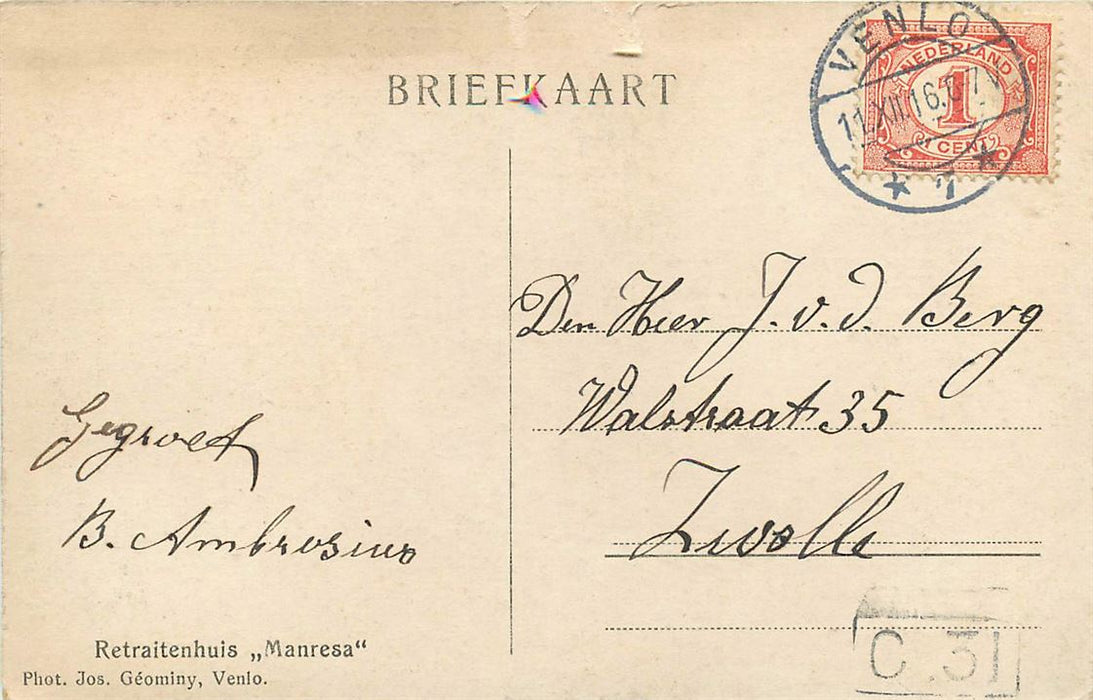 BRIEFKAART
VENLO
11.XII.16.
1
NEDERLAND
1
CENT
Den Heer J. v. d. Berg
Walstraat 35
Zwolle
Gegroet
B. Ambrosius
Retraitenhuis „Manresa“
Phot. Jos. Géominy, Venlo.
C. 31